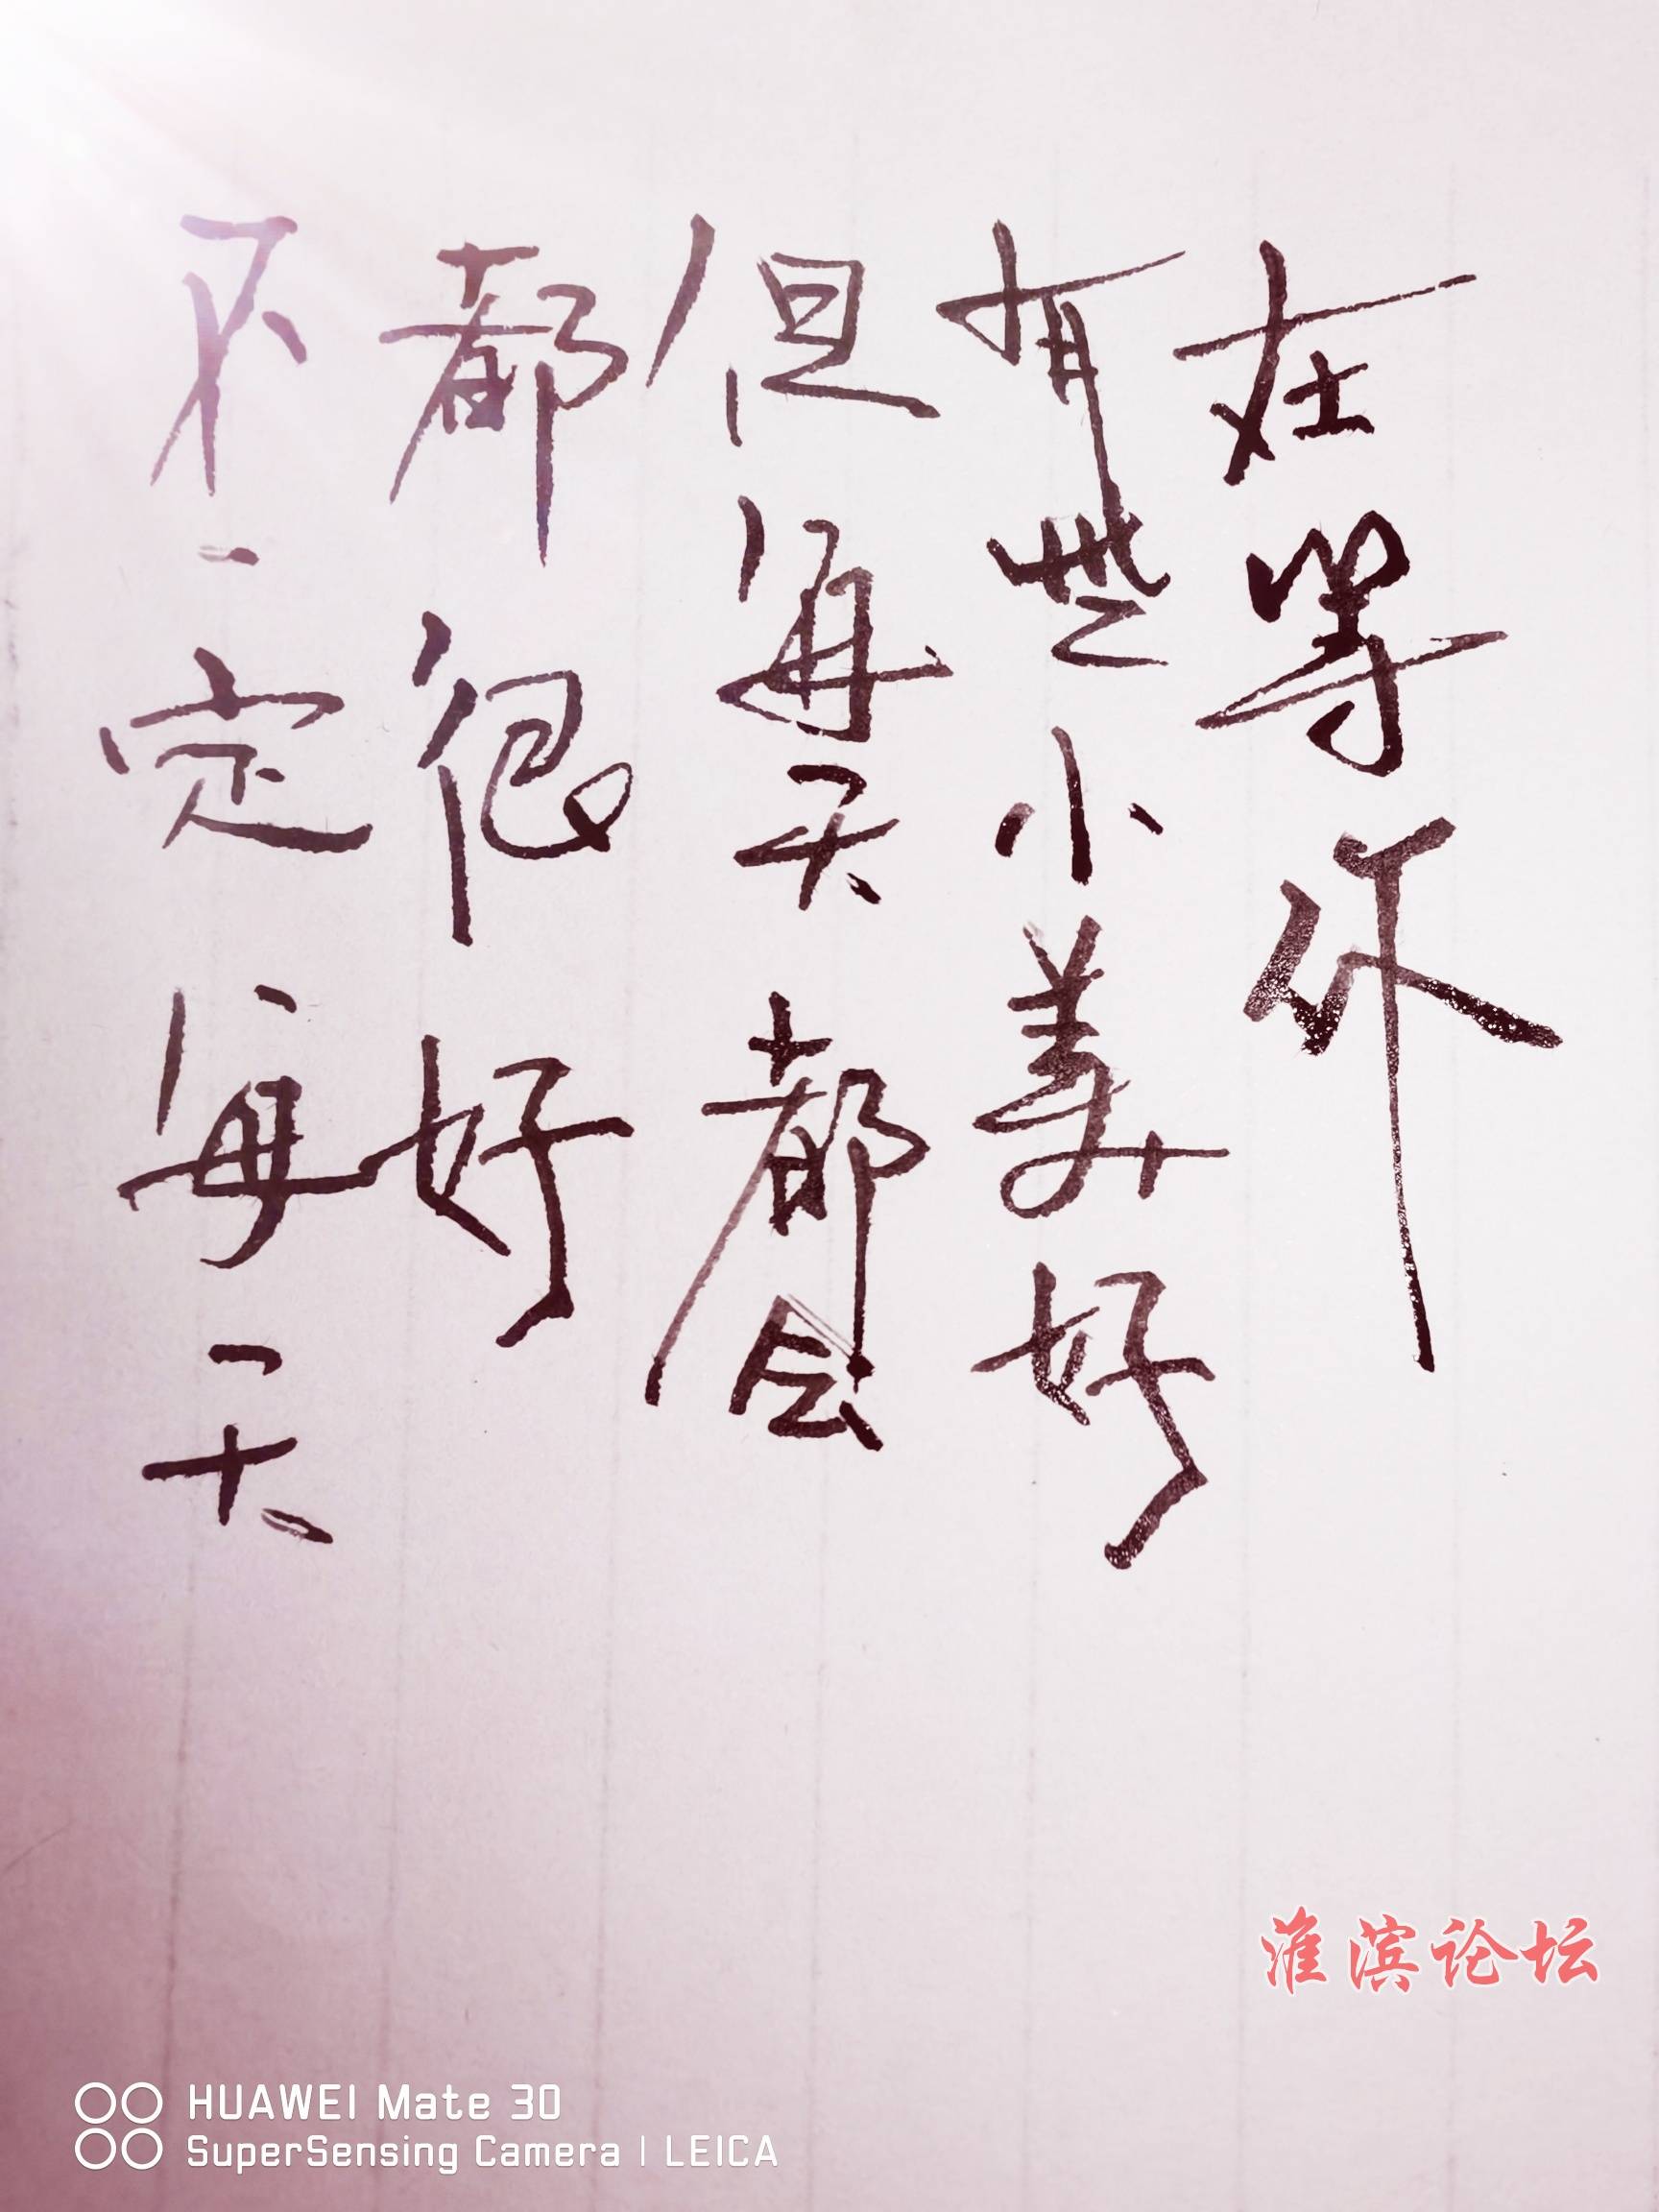 不一定每天
都很好
但每天都会
有些小美好
在等你
淮滨论坛
HUAWEI Mate 30
SuperSensing Camera | LEICA